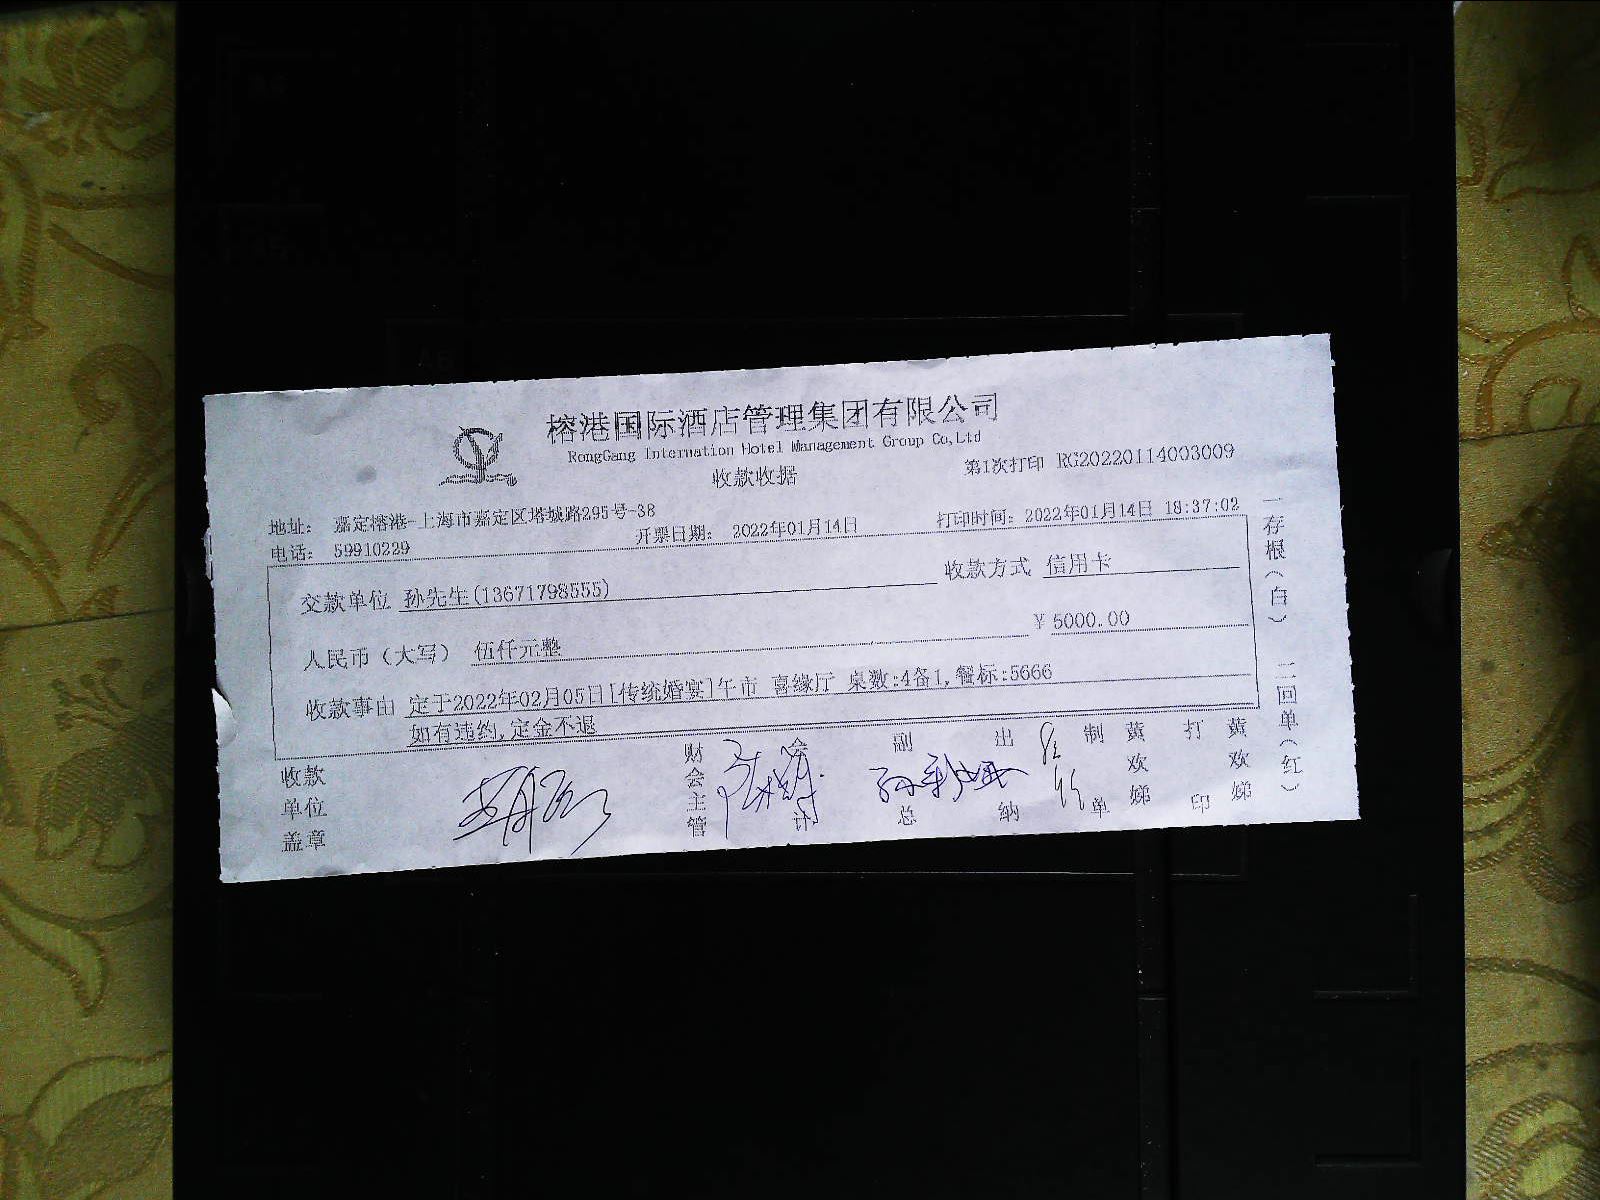 榕港国际酒店管理集团有限公司
RongGang Internation Hotel Management Group Co,Ltd
收款收据
第1次打印 RG20220114003009
地址: 嘉定榕港-上海市嘉定区塔城路295号-38
电话: 59910229
开票日期: 2022年01月14日
打印时间: 2022年01月14日 18:37:02
交款单位 孙先生(13671798555)
收款方式 信用卡
人民币(大写) 伍仟元整
¥ 5000.00
收款事由 定于2022年02月05日[传统婚宴]午市 喜缘厅 桌数:4备1,餐标:5666
如有违约,定金不退
收款单位盖章
财会主管
会计
副总
出纳
制单
黄欢娣
打印
黄欢娣
一存根(白) 二回单(红)